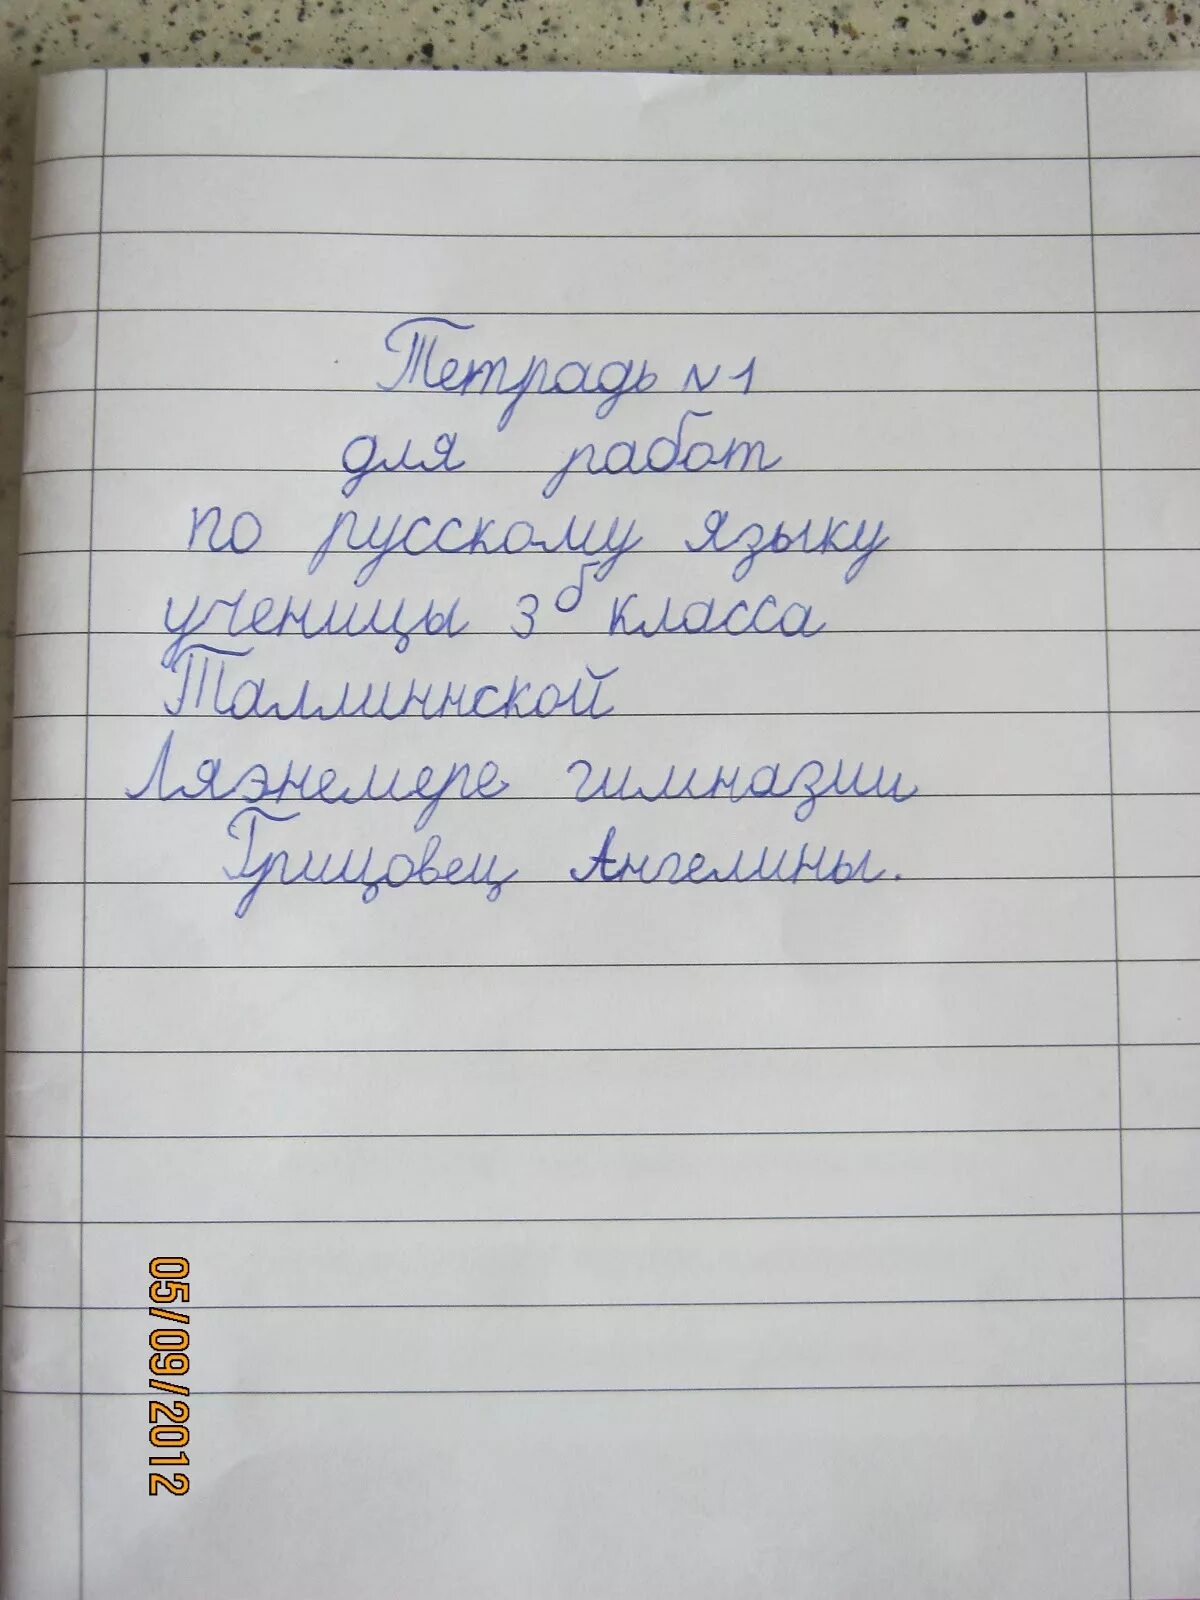 Тетрадь N1
для работ
по русскому языку
ученицы 3б класса
Таллиннской
Ляэнемере гимназии
Грицовец Ангелины.
05/09/2012